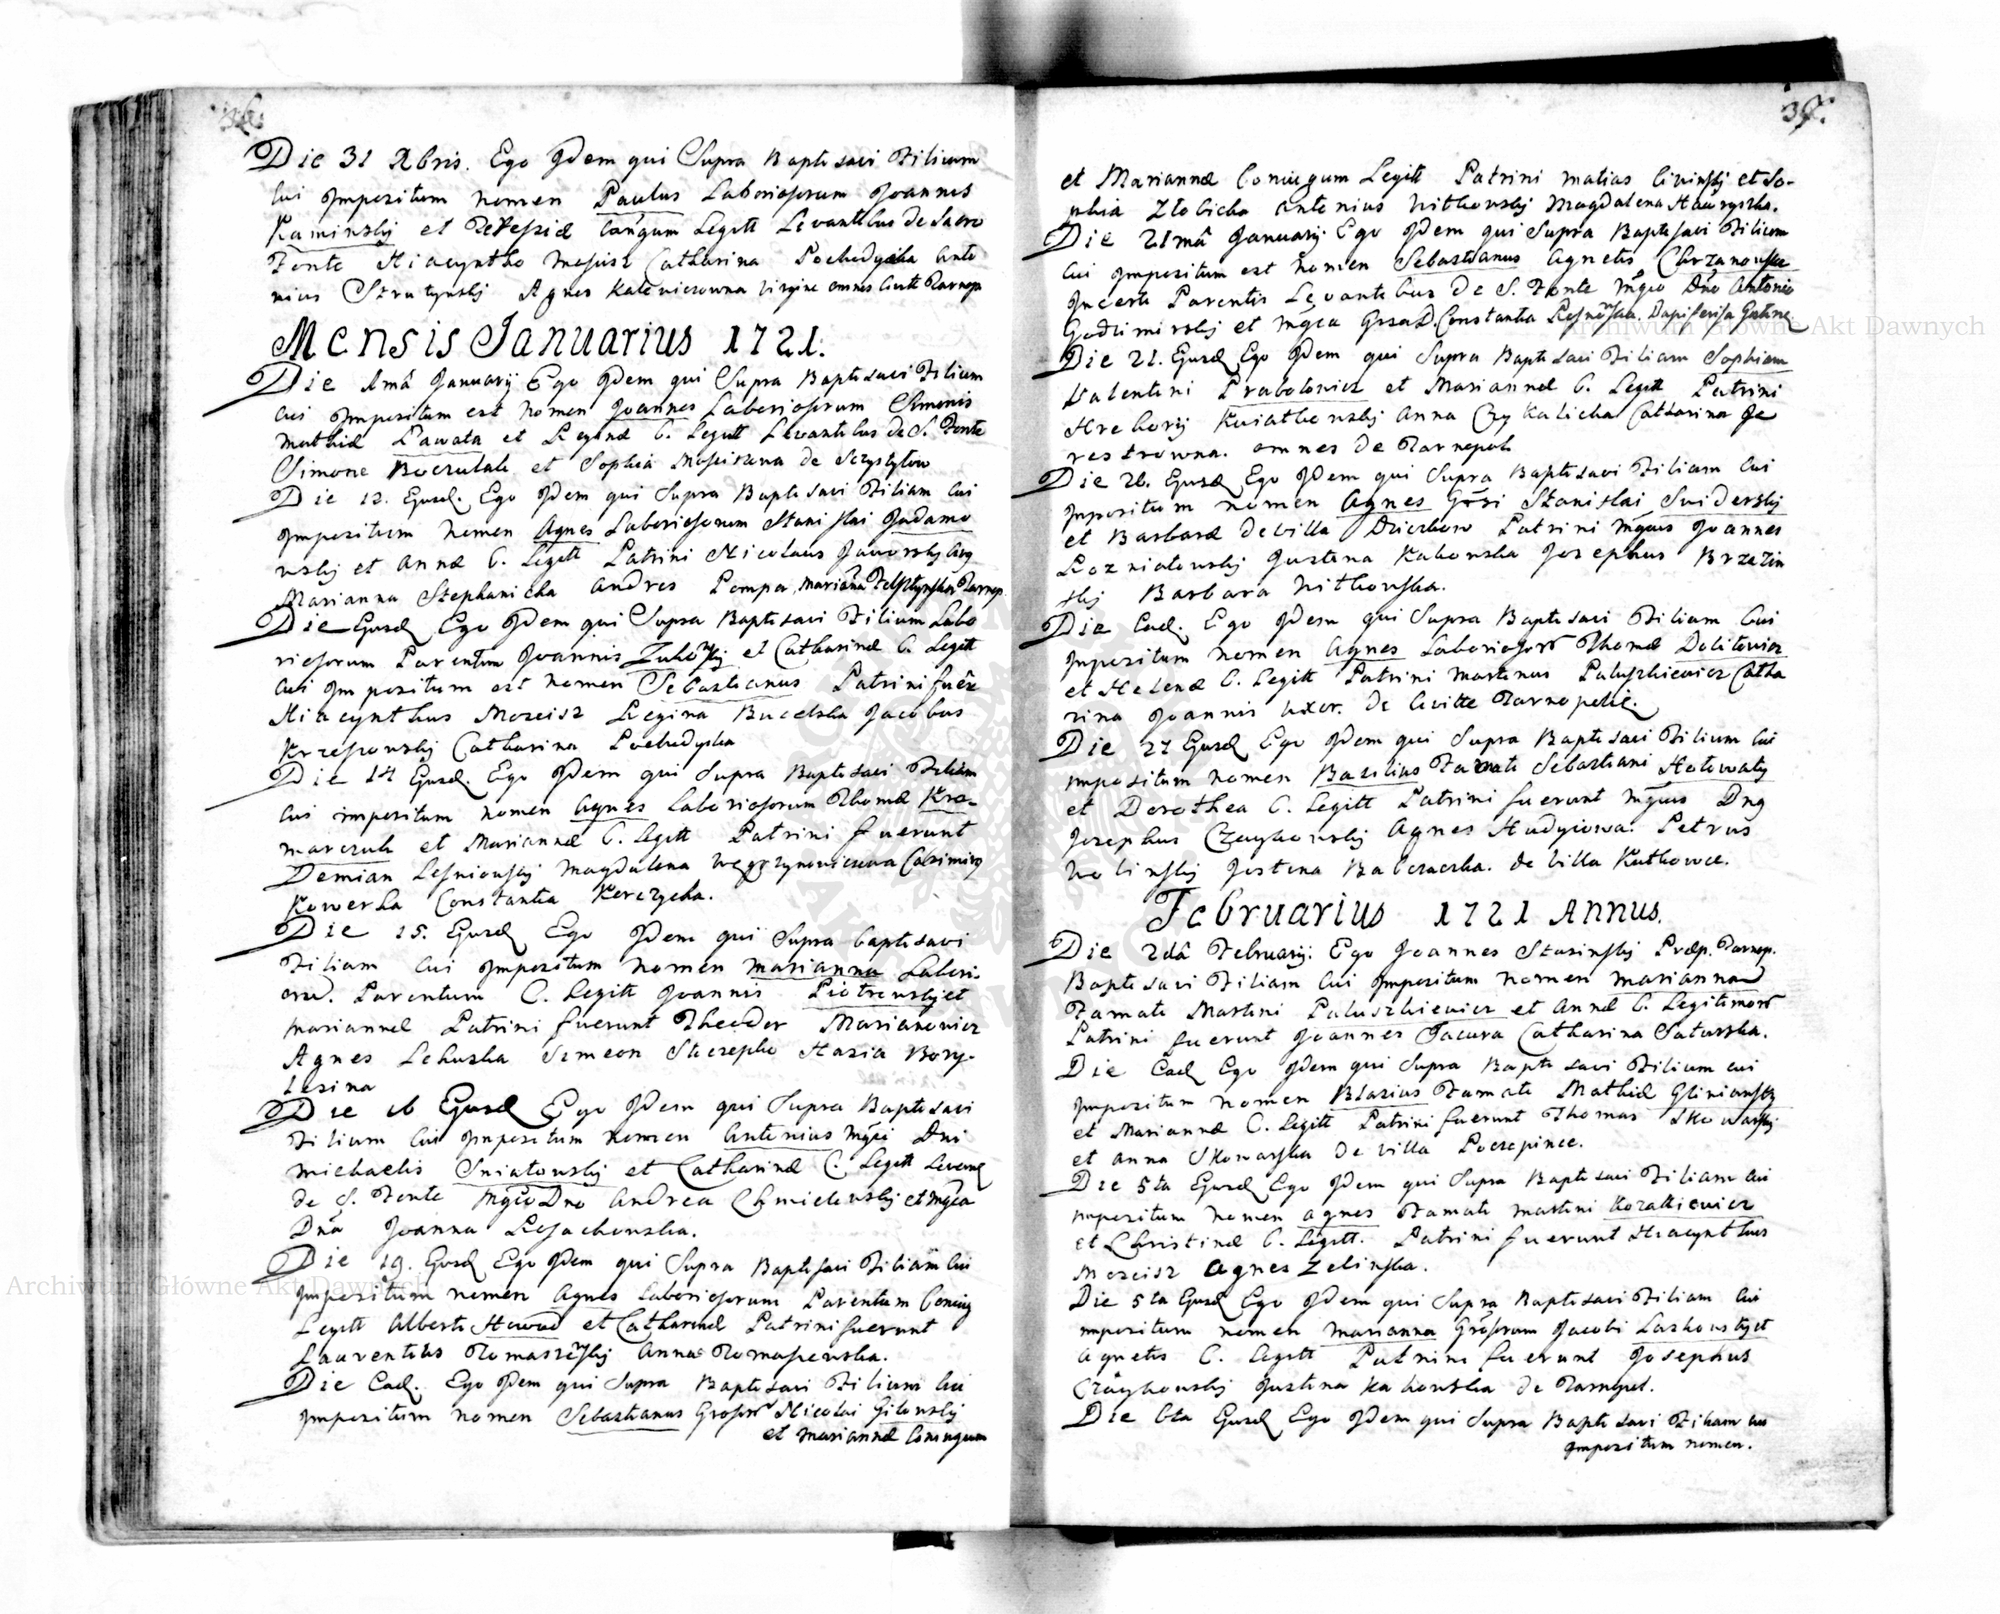 36.
Die 31 Xbris. Ego Idem qui Supra Baptisavi Filium
Cui Impositum nomen Paulus Laboriosorum Joannis
Kaminskij et Coniugum Legitt Levantibus de Sacro
Fonte Hiacyntho Mosisz Catharina Pochodycka Anto
nius Strutynskij Agnes virgine omnes Civit Tarnop
Mensis Januarius 1721.
Die 1mâ Januarij Ego Idem qui Supra Baptisavi Filium
Cui Impositum est Nomen Joannes Laboriosorum Simonis
Mathiæ Lawata et Reginæ C. Legitt Levantibus de S. Fonte
Simone et Sophia de
Die 12. Eiusd. Ego Idem qui Supra Baptisavi Filiam Cui
Impositum Nomen Agnes Laboriosorum Stanislai Jadamo
wskij et Annæ C. Legitt Patrini Nicolaus Jaworskij
Marianna Stephanicka Andres Pompa, Marianna Tarnop.
Die Eiusd Ego Idem qui Supra Baptisavi Filium Labo
riosorum Parentum Joannis et Catharinæ C. Legitt
Cui Impositum est Nomen Sebastianus Patrini fuer
Hiacynthus Moscisz Regina Bucelska Jacobus
Krzesowskij Catharina Pochodycka
Die 14 Eiusd. Ego Idem qui Supra Baptisavi Filiam
Cui impositum nomen Agnes Laboriosorum Thomæ Kra-
marczuk et Mariannæ C. Legitt Patrini fuerunt
Demian Lesniowskij Magdalena Casimirus
Kowerka Constantia Korczycka.
Die 15. Eiusd Ego Idem qui Supra baptisavi
Filiam Cui Impositum Nomen Marianna Labori-
Parentum C. Legitt Joannis Piotrowskij et
Mariannæ Patrini fuerunt Theodor Marianowicz
Agnes Lekuska Simeon Hasia Bory-
Die 16 Eiusd Ego Idem qui Supra Baptisavi
Filium Cui Impositum nomen Antonius Mgci Dni
Michaelis Sniatowskij et Catharinæ C. Legitt Levend
de S. Fonte Mgco Dno Andrea Chmielewskij et Mgca
Dna Joanna
Die 19. Eiusd Ego Idem qui Supra Baptisavi Filiam Cui
Impositum nomen Agnes Laboriosorum Parentum Coniug
Legitt Alberti et Catharinæ Patrini fuerunt
Laurentius Tomaszewskij Anna Tomasewska.
Die Ead. Ego Idem qui Supra Baptisavi Filium Cui
Impositum nomen Sebastianus Nicolai Gilowskij
et Mariannæ Coniugum
37.
et Mariannæ Coniugum Legitt Patrini Matias et So-
phia Zlobicka Antonius Witkowskij Magdalena Hawryszka.
Die 21mâ Januarij Ego Idem qui Supra Baptisavi Filium
Cui Impositum est Nomen Sebastianus Agnetis Chrzanowska
Incerti Parentis Levantibus de S. Fonte Mgco Dno Antonio
et Mgca D. Constantia Dapiferisa
Die 21. Eiusd Ego Idem qui Supra Baptisavi Filiam Sophiam
Valentini Prabotowicz et Mariannæ C. Legitt Patrini
Hrehorij Kwiatkowskij Anna Catharina Je
restrowna. omnes de Tarnopoli
Die 26. Eiusd Ego Idem qui Supra Baptisavi Filiam Cui
Impositum nomen Agnes Stanislai Swiderskij
et Barbaræ de Villa Patrini Mgcus Joannes
Rozniatowskij Justina Kakowska Josephus Brzezin
skij Barbara Witkowska.
Die Ead. Ego Idem qui Supra Baptisavi Filiam Cui
Impositum Nomen Agnes Laboriosor Thomæ Dolitowicz
et Helenæ C. Legitt Patrini Martinus Paluszkiewicz Catha
rina Joannis Uxor. de Civitte Tarnopolie.
Die 27 Eiusd Ego Idem qui Supra Baptisavi Filium Cui
Impositum nomen Basilius Famati Sebastiani Hotowaty
et Dorothea C. Legitt Patrini fuerunt Mgcus Dns
Josephus Czaykowskij Agnes Hudyiowa. Petrus
Wolinskij Justina Babczacska. de Villa Kutkowce.
Februarius 1721 Annus.
Die 2dâ Februarij. Ego Joannes Stasinskij Præp. Tarnop.
Baptisavi Filiam Cui Impositum nomen Marianna
Famati Martini Paluszkiewicz et Annæ C. Legitimor
Patrini fuerunt Joannes Jacura Catharina Satarska.
Die Ead Ego Idem qui Supra Baptisavi Filium cui
Impositum nomen Blasius Famati Mathiæ Glinianskij
et Mariannæ C. Legitt Patrini fuerunt Thomas Skowarskij
et Anna Skowarska de Villa Poczepince.
Die 5ta Eiusd Ego Idem qui Supra Baptisavi Filiam Cui
Impositum Nomen Agnes Famati Martini Kozakiewicz
et Christinæ C. Legitt. Patrini fuerunt Hiacynthus
Moscisz Agnes Zelinska.
Die 5ta Eiusd Ego Idem qui Supra Baptisavi Filiam Cui
Impositum nomen Marianna Jacobi Laskowskij et
Agnetis C. Legitt Patrini fuerunt Josephus
Czaykowskij Justina Kakowska de Tarnopol.
Die 6ta Eiusd Ego Idem qui Supra Baptisavi Filiam cui
Impositum nomen.
Archiwum Główne Akt Dawnych
Archiwum Główne Akt Dawnych